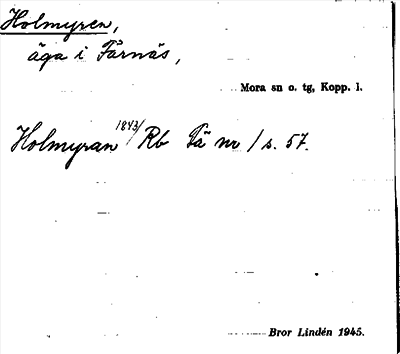 Holmyren,
äga i Färnäs,
Mora sn o. tg, Kopp. l.
Holmyran 1843/ Rb Fä nr 1 s. 57.
Bror Lindén 1945.